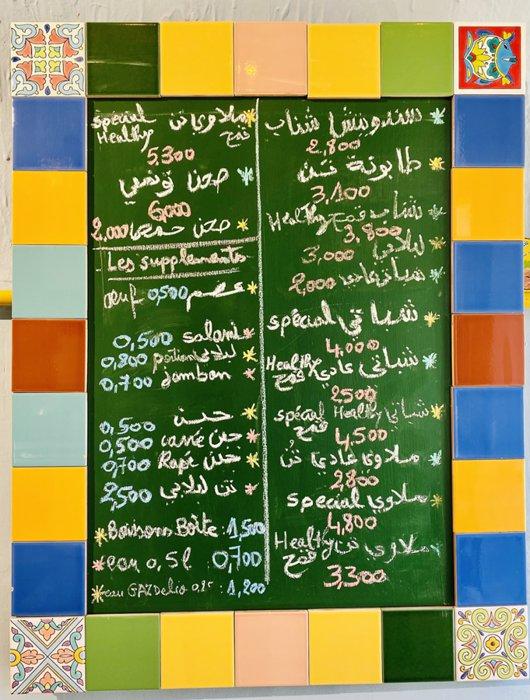 سندويش شباب
2,800
طابونة تن
3,100
شباب قمح Healthy
3,800
لبلابي 3,000
شباتي عادي 2,000
شباتي spécial
4,000
شباتي عادي قمح Healthy
2500
شباتي Healthy spécial
قمح
4,500
ملاوي عادي تن
2800
ملاوي special
4,800
ملاوي تن قمح Healthy
3,300
ملاوي تن spécial
قمح Healthy
5300
صحن تونسي
6000
صحن حمصة 2,000
Les supplements
œuf 0,500 عضم
0,500 salami
0,800 potion لبلابي
0,700 Jambon
0,500 جبن
0,500 carré جبن
0,700 Rapé جبن
2,500 تن لبلابي
Boisons Boite : 1,500
eau 0,5 l : 0,700
eau GAZ Delio 0,25 : 1,200